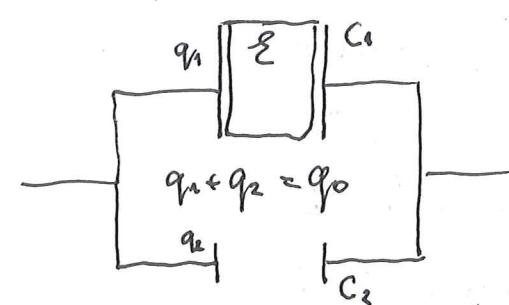 q₁ ε C₁
q₁ + q₂ = q₀
q₂
C₂